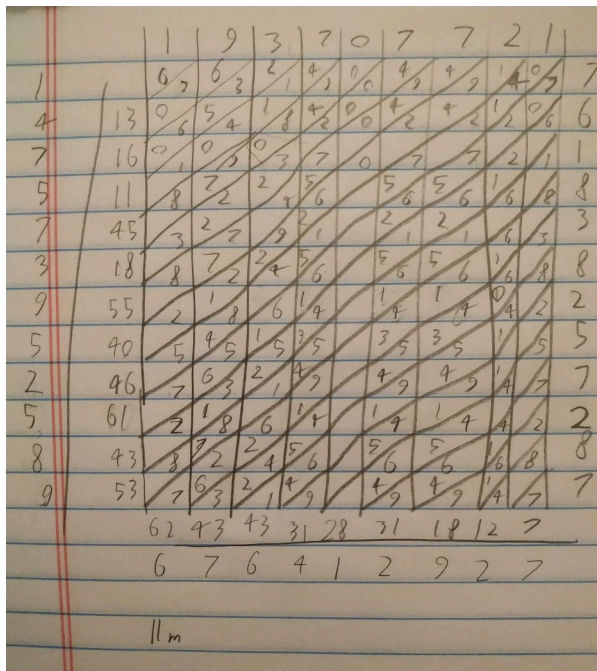 1 9 3 7 0 7 7 2 1
1 0 7 6 3 2 1 4 9 0 0 4 9 4 9 1 4 0 7 7
4 13 0 6 5 4 1 8 4 2 0 0 4 2 4 2 1 2 0 6 6
7 16 0 1 0 9 0 3 7 0 7 7 2 1 1
5 11 8 7 2 2 4 5 6 5 6 5 6 1 6 8 8
7 45 3 2 7 9 2 1 2 1 2 1 6 3 3
3 18 8 7 2 2 4 5 6 5 6 5 6 1 6 8 8
9 55 2 1 8 6 1 4 1 4 1 4 0 4 2 2
5 40 5 4 5 1 5 3 5 3 5 3 5 1 5 5
2 46 7 6 3 2 1 4 9 4 9 4 9 1 4 7 7
5 61 2 1 8 6 1 4 1 4 1 4 4 2 2
8 43 8 7 2 2 4 5 6 5 6 5 6 1 6 8 8
9 53 7 6 3 2 1 4 9 4 9 4 9 1 4 7 7
62 43 43 31 28 31 18 12 7
6 7 6 4 1 2 9 2 7
11m